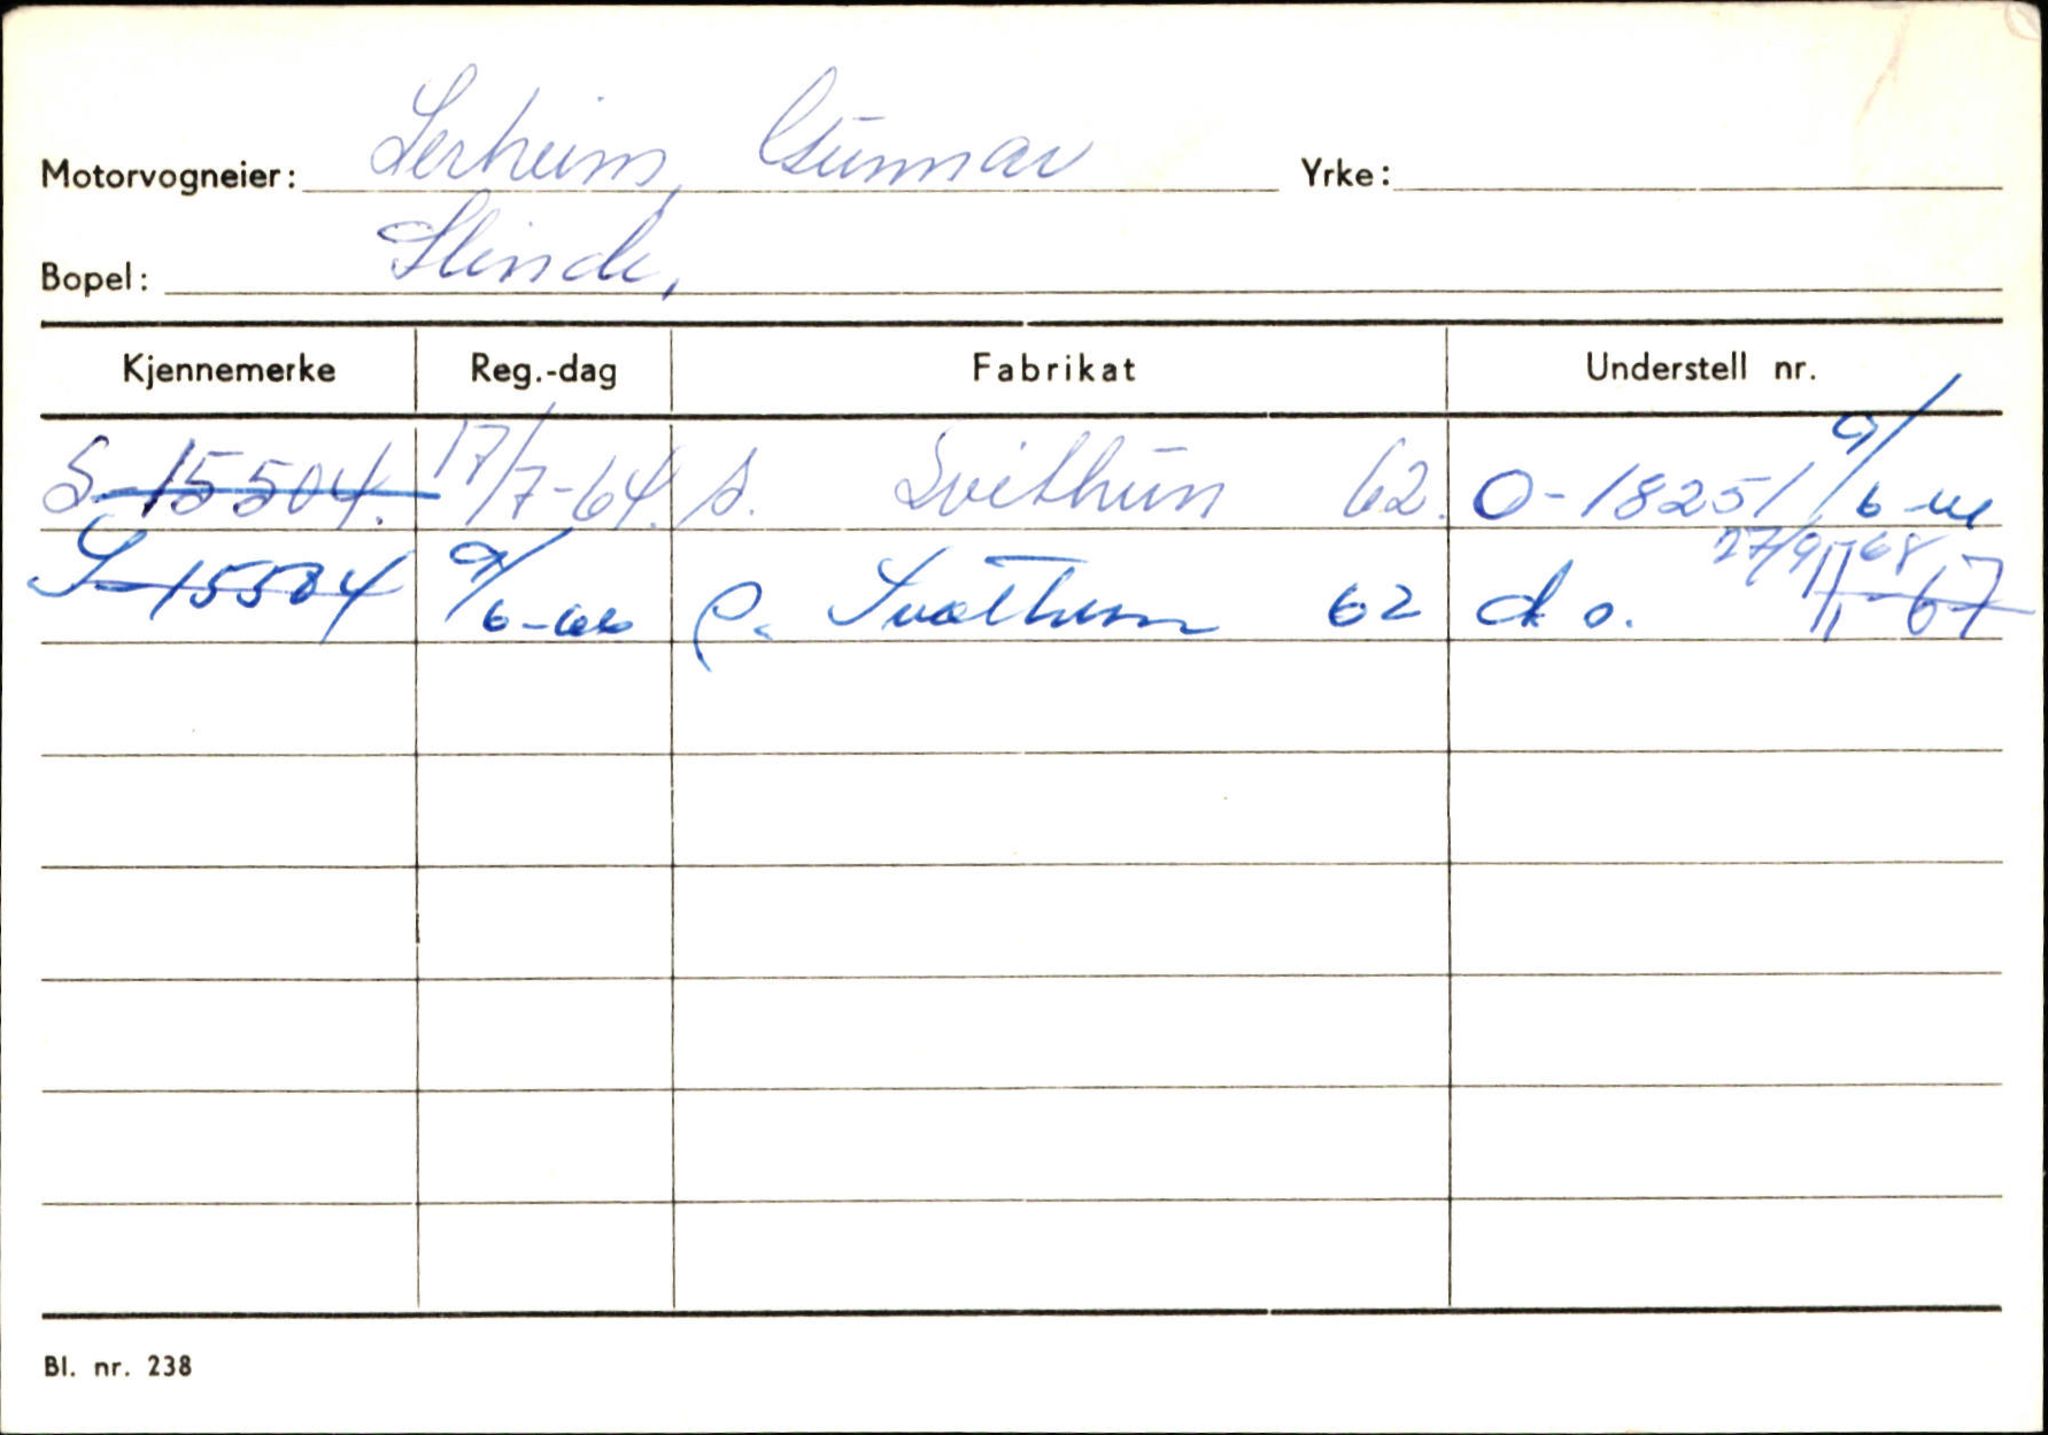 Motorvogneier: Lerheim, Gunnar Yrke:
Bopel: Slinde,
Kjennemerke Reg.-dag Fabrikat Understell nr.
S-15504. 17/7-64. s. Svithun 62. O-18251 9/6-66
S-15504 9/6-66 P. Svithun 62 d o. 27/9-68 1/11-67
Bl. nr. 238